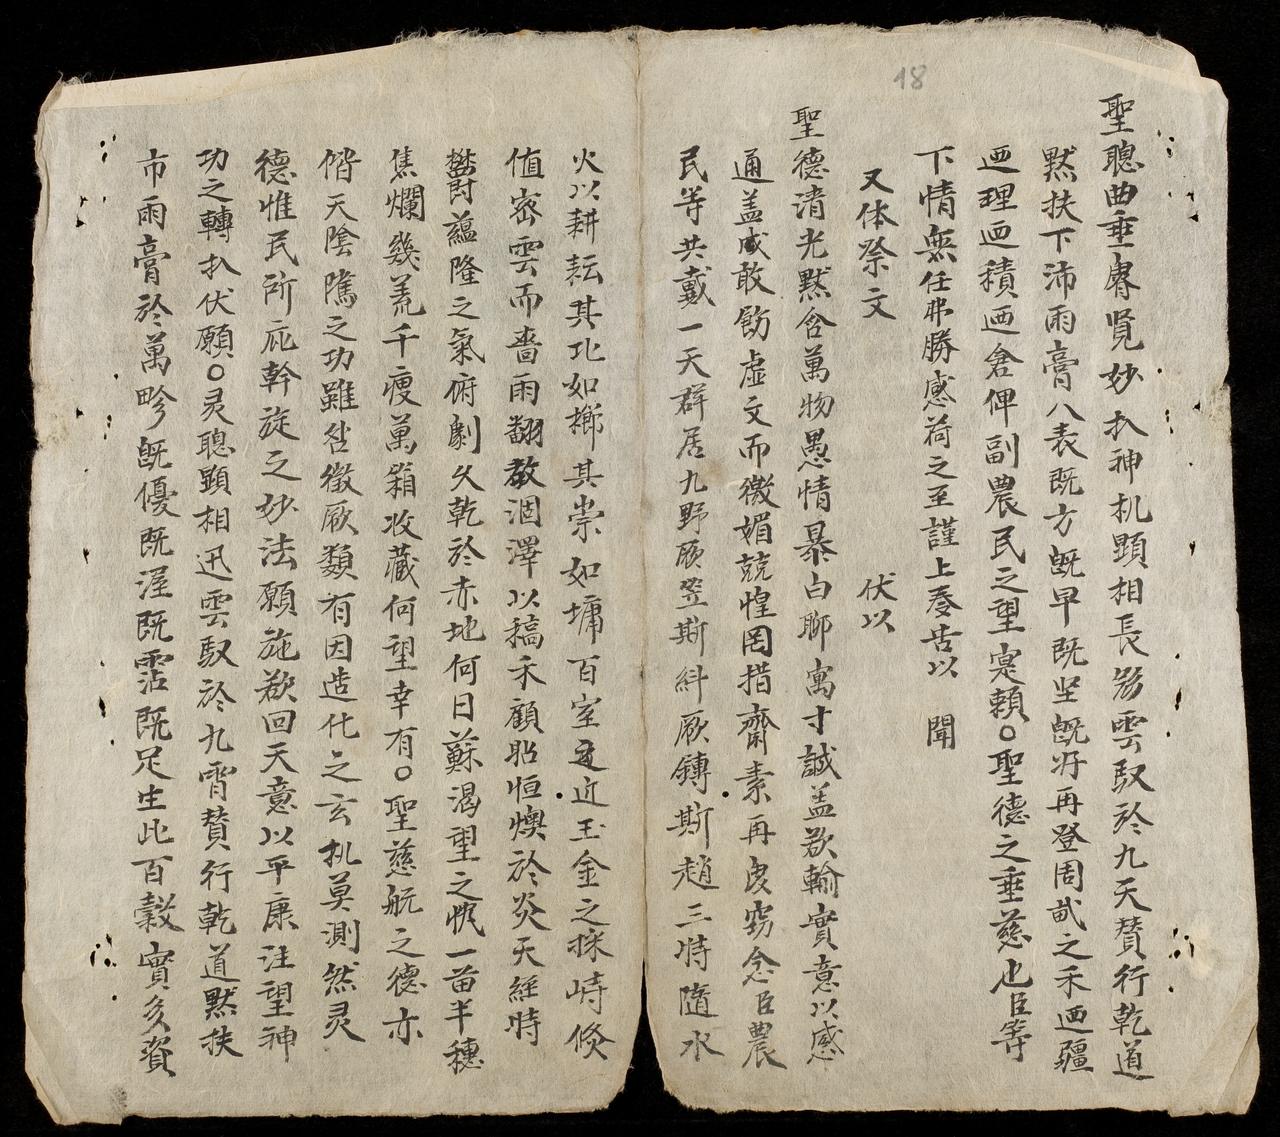 18
聖聰曲垂睿覽妙扒神机顕相長驅雲馭於九天賛行乾道
黙扶下沛雨膏八表既方既早既坚既好再登周畝之禾廼疆
廼理廼積廼倉俾副農民之望寔賴○聖德之垂慈也臣等
下情無任弗勝感荷之至謹上奏告以　聞
又体祭文　伏以
聖德清光黙含萬物愚情暴白聊寓寸誠盖欲輸實意以感
通盖咸敢飭虚文而徼媚兢惶罔措齋素再虔窃念臣農
民等共戴一天群居九野厥笠斯糾厥鎛斯趙三時随水
火以耕耘其比如櫛其崇如墉百室遠近玉金之採時倏
值密雲而嗇雨翻教涸澤以稿禾顧貽恒燠於炎天經時
欝蘊隆之氣俯劇久乾於赤地何日蘇渴望之懷一苗半穗
焦爛幾荒千瘦萬箱收藏何望幸有○聖慈航之德亦
偕天陰隲之功雖咎徵厥類有因造化之玄扒莫測然灵
德惟民所庇幹旋之妙法願施欲回天意以平康注望神
功之轉扒伏願○灵聰顕相迅雲馭於九霄賛行乾道黙扶
市雨膏於萬畛既優既渥既霑既足生此百穀實多資